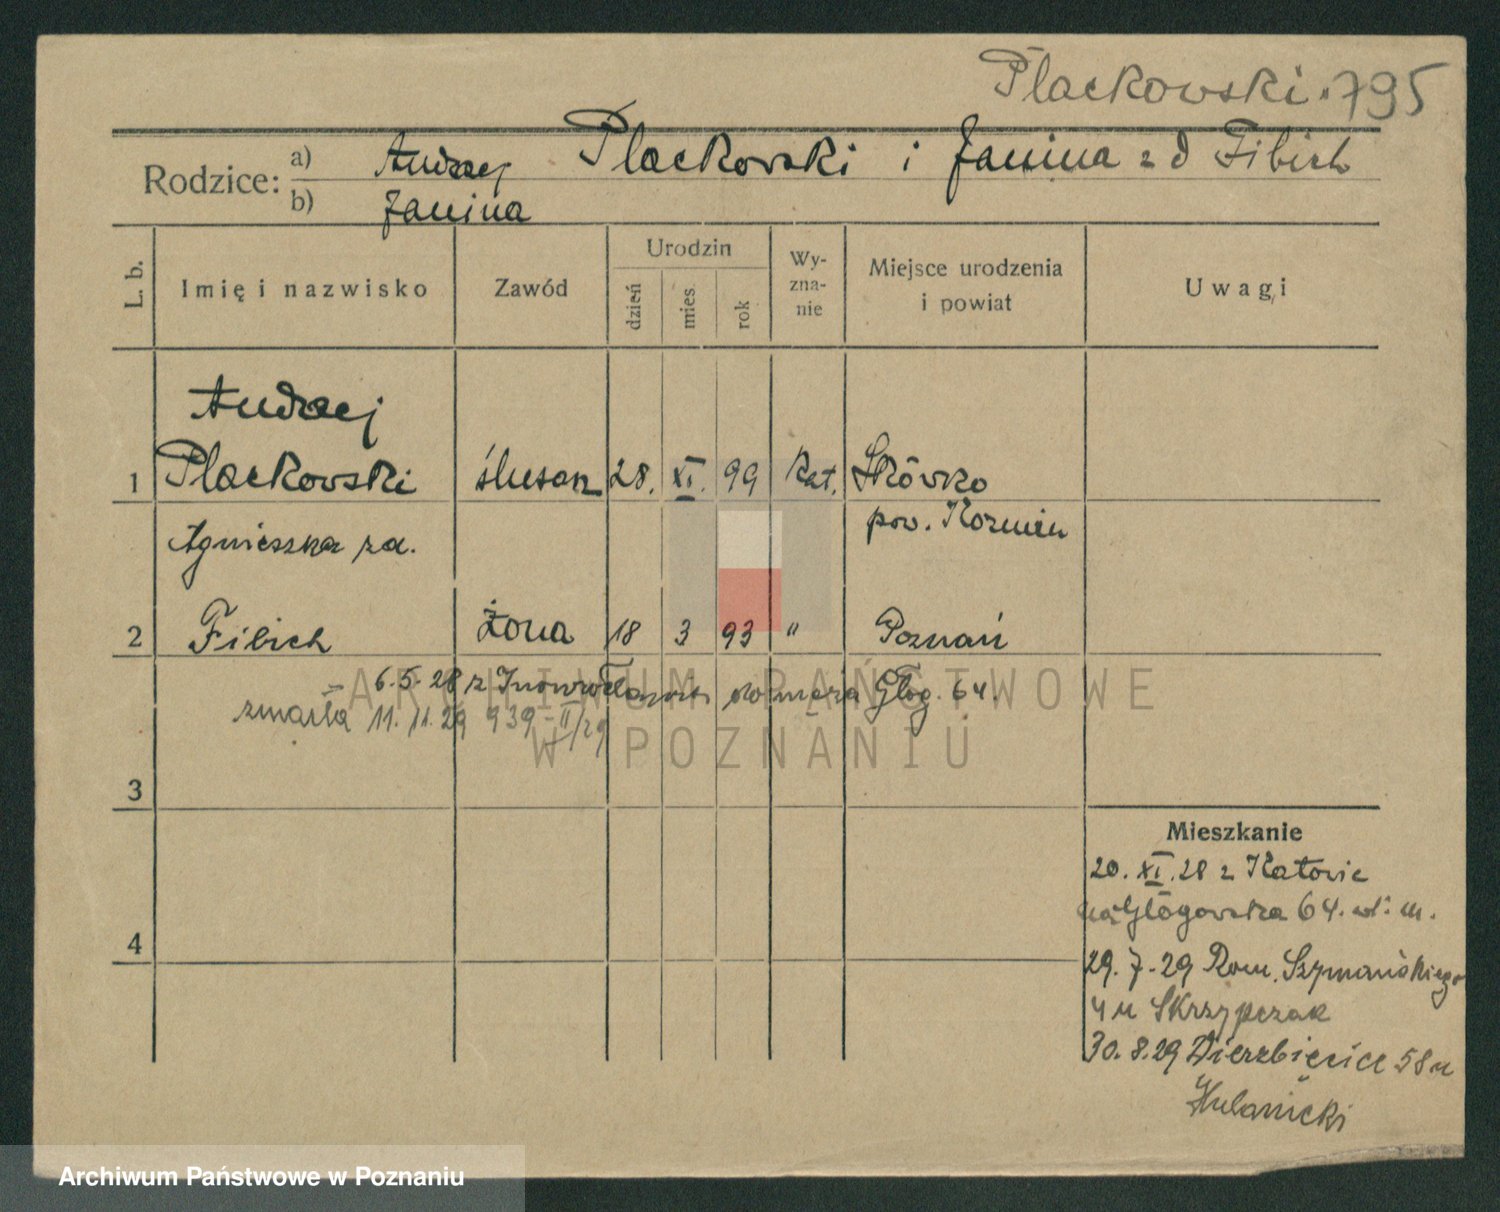 Plackowski 795
Rodzice: a) Andrzej Plackowski i Janina z d Fibich
b) Janina
L. b.
Imię i nazwisko
Zawód
Urodzin
dzień
mies.
rok
Wy-
zna-
nie
Miejsce urodzenia
i powiat
Uwagi
Andrzej
1 Plackowski ślusarz 28. XI. 99 kat.
pow. Koźmin
Agnieszka
2 Fibich Żona 18 3 93 " Poznań
6.5.28 z Inowrocławia do męża Głog. 64.
zmarła 11.11.29 939-II/29
3
4
Mieszkanie
20. XI. 28 z Katowic
na Głogowska 64. wł. m.
29.7-29 Rom. Szymańskiego
4 u Skrzypczak
30.8.29 Wierzbięcice 58 u
Hulanicki
ARCHIWUM PAŃSTWOWE
W POZNANIU
Archiwum Państwowe w Poznaniu